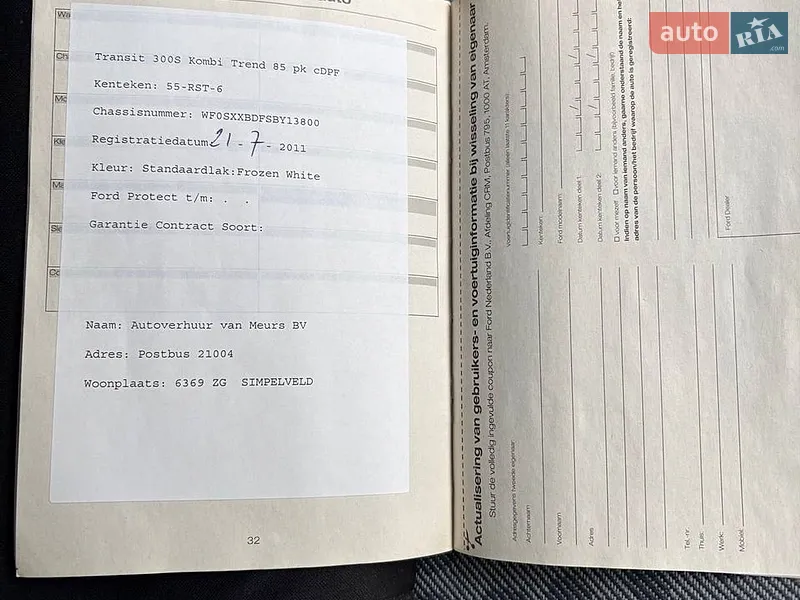 Transit 300S Kombi Trend 85 pk cDPF
Kenteken: 55-RST-6
Chassisnummer: WF0SXXBDFSBY13800
Registratiedatum 21-7- 2011
Kleur: Standaardlak:Frozen White
Ford Protect t/m: . .
Garantie Contract Soort:
Naam: Autoverhuur van Meurs BV
Adres: Postbus 21004
Woonplaats: 6369 ZG SIMPELVELD
32
Actualisering van gebruikers- en voertuiginformatie bij wisseling van eigenaar
Stuur de volledig ingevulde coupon naar Ford Nederland B.V., Afdeling CRM, Postbus 795, 1000 AT, Amsterdam.
Adresgegevens tweede eigenaar
Achternaam
Voornaam
Adres
Tel.-nr.
Thuis:
Werk:
Mobiel:
Voertuigidentificatienummer (alleen laatste 11 karakters)
Kenteken:
Ford modelnaam:
Datum kenteken deel 1:
Datum kenteken deel 2:
voor mezelf voor iemand anders (bijvoorbeeld familie, bedrijf)
Indien op naam van iemand anders, gaarne onderstaand de naam en het
adres van de persoon/het bedrijf waarop de auto is geregistreerd:
Ford Dealer
auto RIA .com